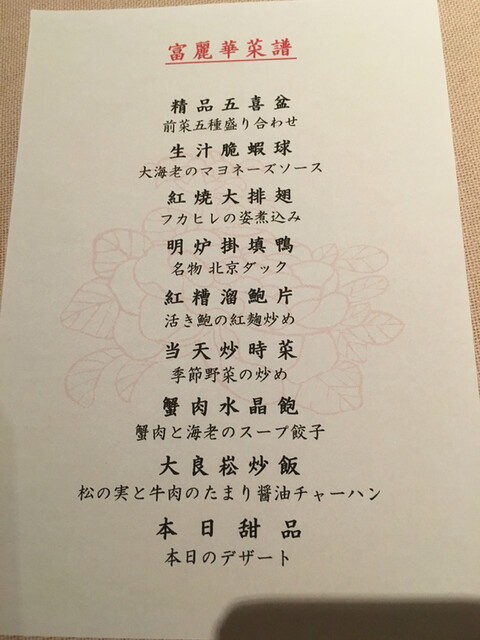 富麗華菜譜
精品五喜盆
前菜五種盛り合わせ
生汁脆蝦球
大海老のマヨネーズソース
紅焼大排翅
フカヒレの姿煮込み
明炉掛填鴨
名物 北京ダック
紅糟溜鮑片
活き鮑の紅麹炒め
当天炒時菜
季節野菜の炒め
蟹肉水晶飽
蟹肉と海老のスープ餃子
大良崧炒飯
松の実と牛肉のたまり醤油チャーハン
本日甜品
本日のデザート